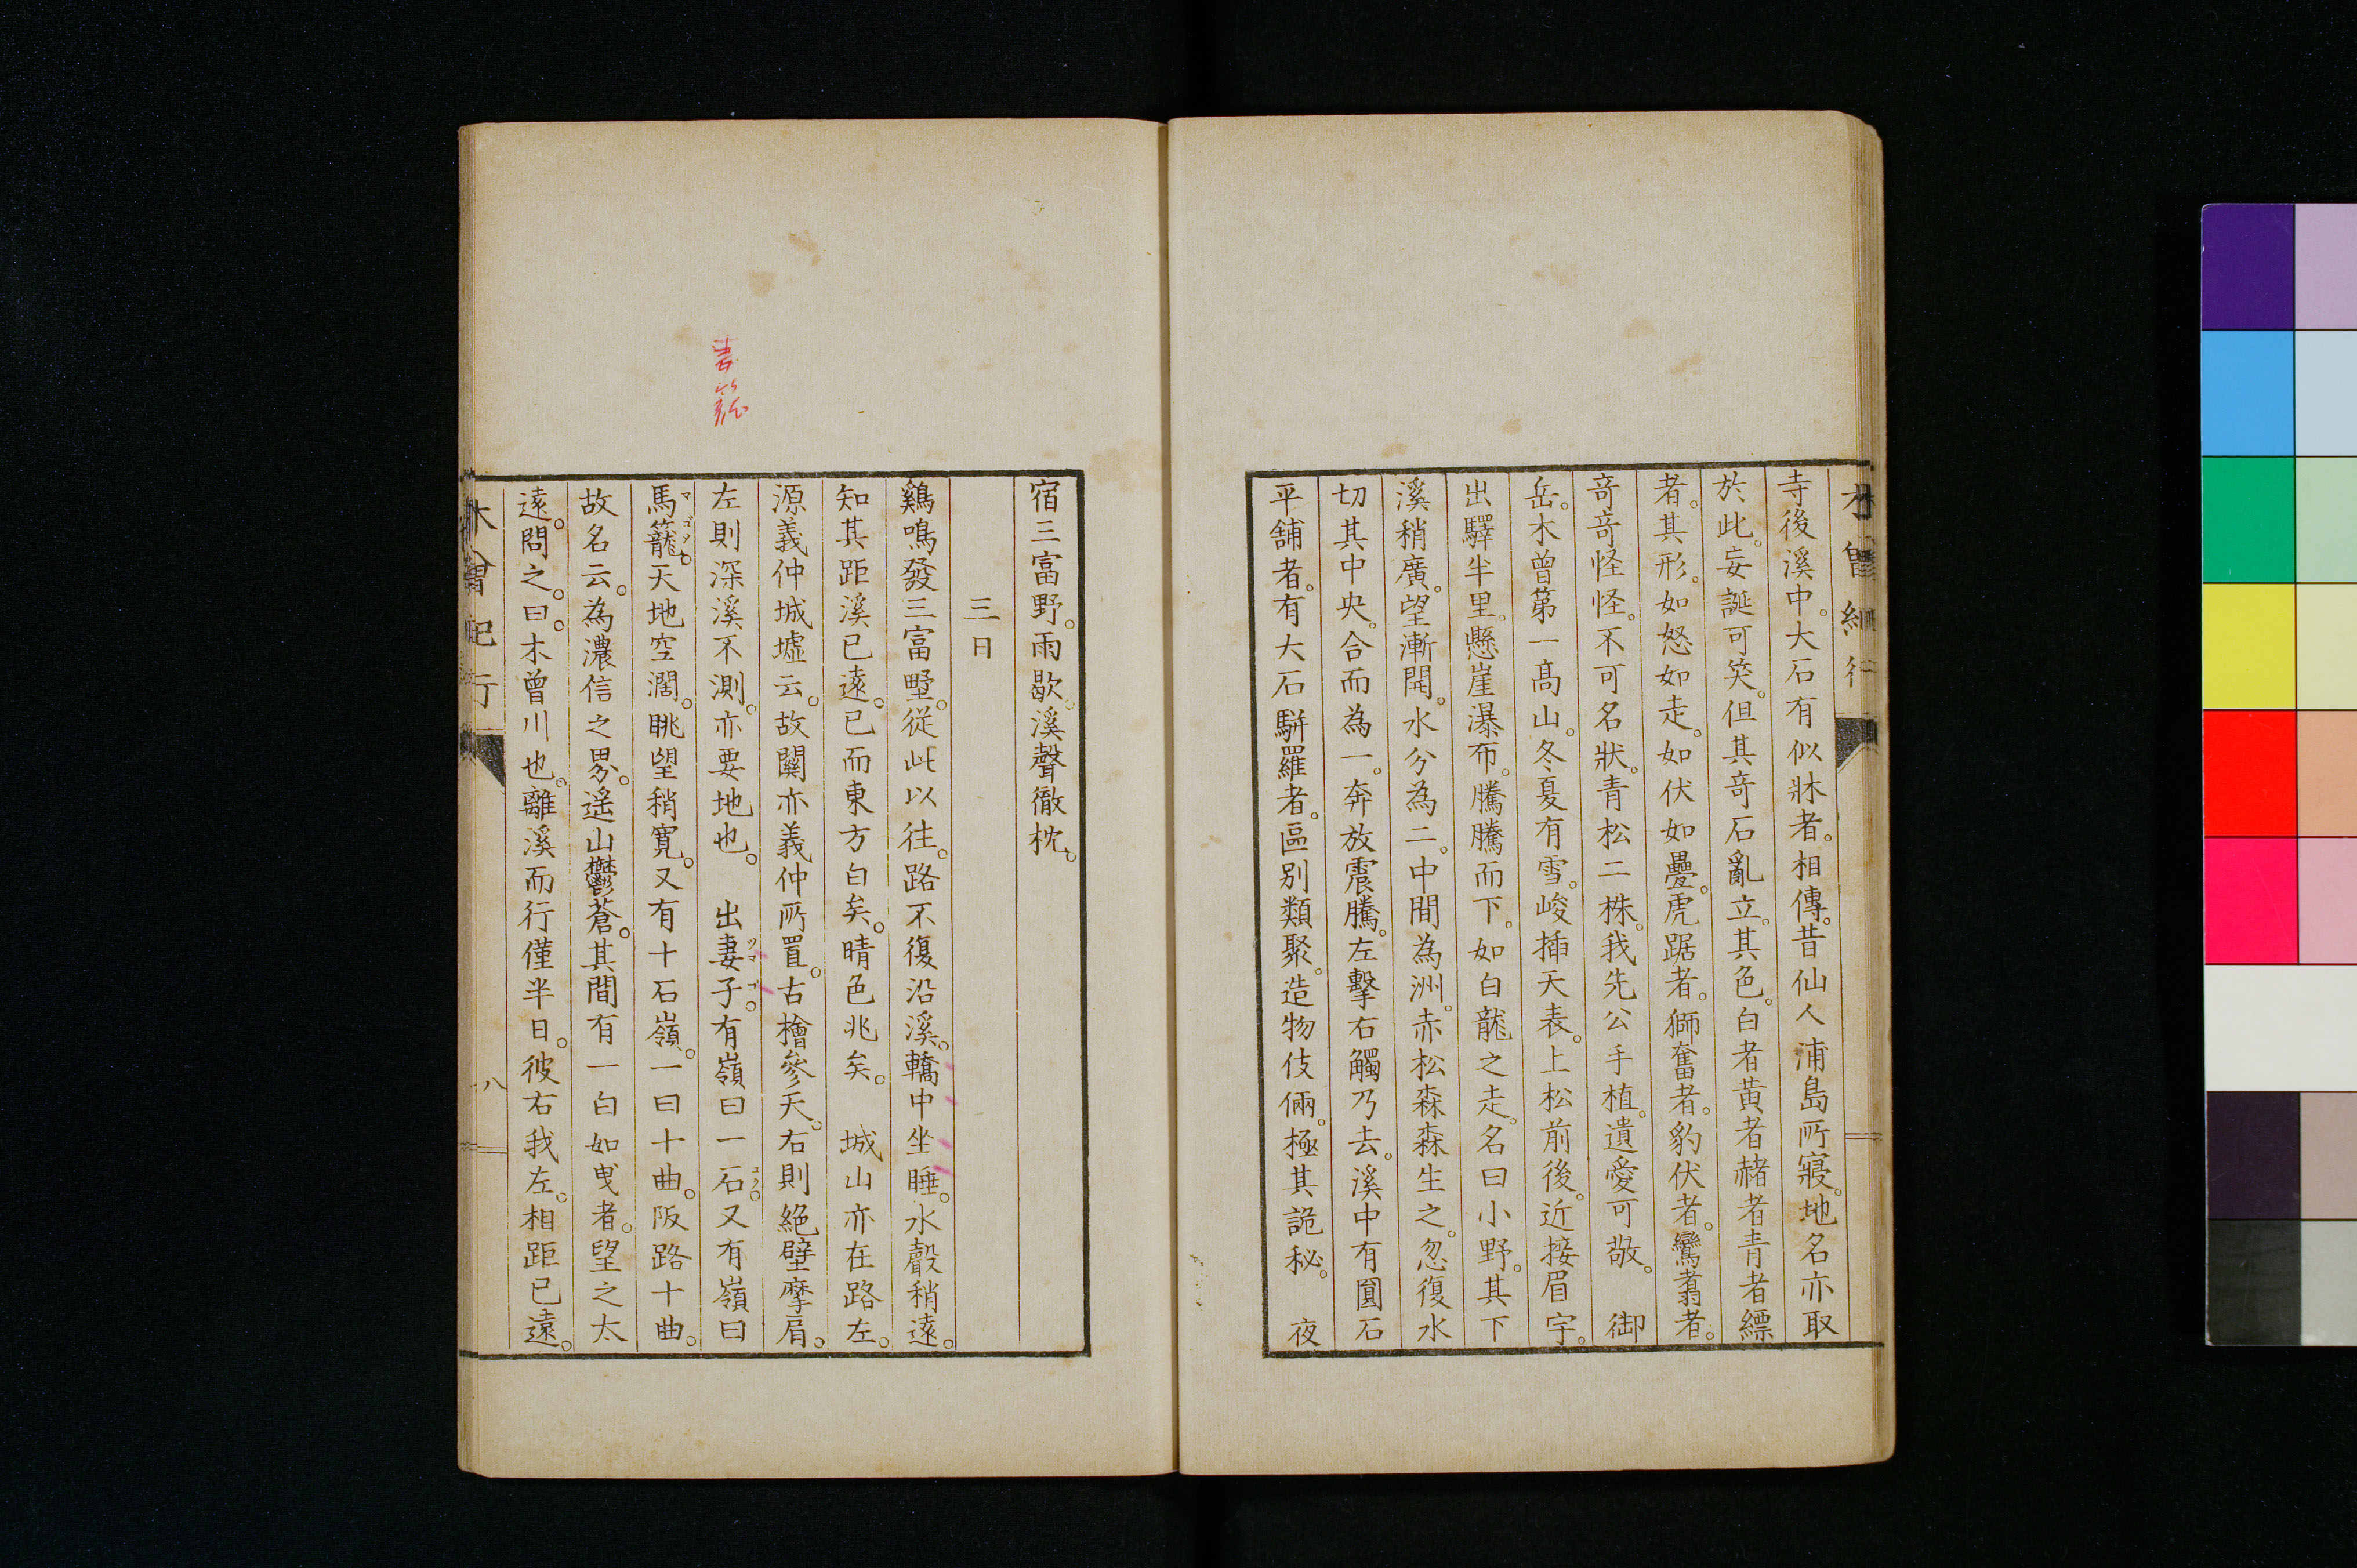 寺後溪中。大石有似牀者。相傳。昔仙人浦島所寢。地名亦取
於此。妄誕可笑。但其竒石亂立。其色。白者黄者赭者青者縹
者。其形。如怒如走。如伏如疊。虎踞者。獅奮者。豹伏者。鸞翥者。
竒竒怪怪。不可名狀。青松二株。我先公手植。遺愛可敬。　御
岳。木曾第一髙山。冬夏有雪。峻揷天表。上松前後。近接眉宇。
出驛半里。懸崖瀑布。騰騰而下。如白龍之走。名曰小野。其下
溪稍廣。望漸開。水分為二。中間為洲。赤松森森生之。忽復水
切其中央。合而為一。奔放震騰。左擊右觸乃去。溪中有圓石
平舖者。有大石駢羅者。區別類聚。造物伎倆。極其詭秘。　夜
宿三富野。雨歇。溪聲徹枕。
三日
鷄鳴發三富墅。從此以往。路不復沿溪。轎中坐睡。水聲稍遠。
知其距溪已遠。已而東方白矣。晴色兆矣。　城山亦在路左。
源義仲城墟云。故關亦義仲所置。古檜參天。右則絕壁摩肩。
左則深溪不測。亦要地也。　出妻子。有嶺曰一石。又有嶺曰
馬籠。天地空濶。眺望稍寬。又有十石嶺。一曰十曲。阪路十曲。
故名云。為濃信之界。遥山鬱蒼。其間有一白如曳者。望之太
遠。問之。曰。木曾川也。離溪而行僅半日。彼右我左。相距已遠。
木曾紀行
八